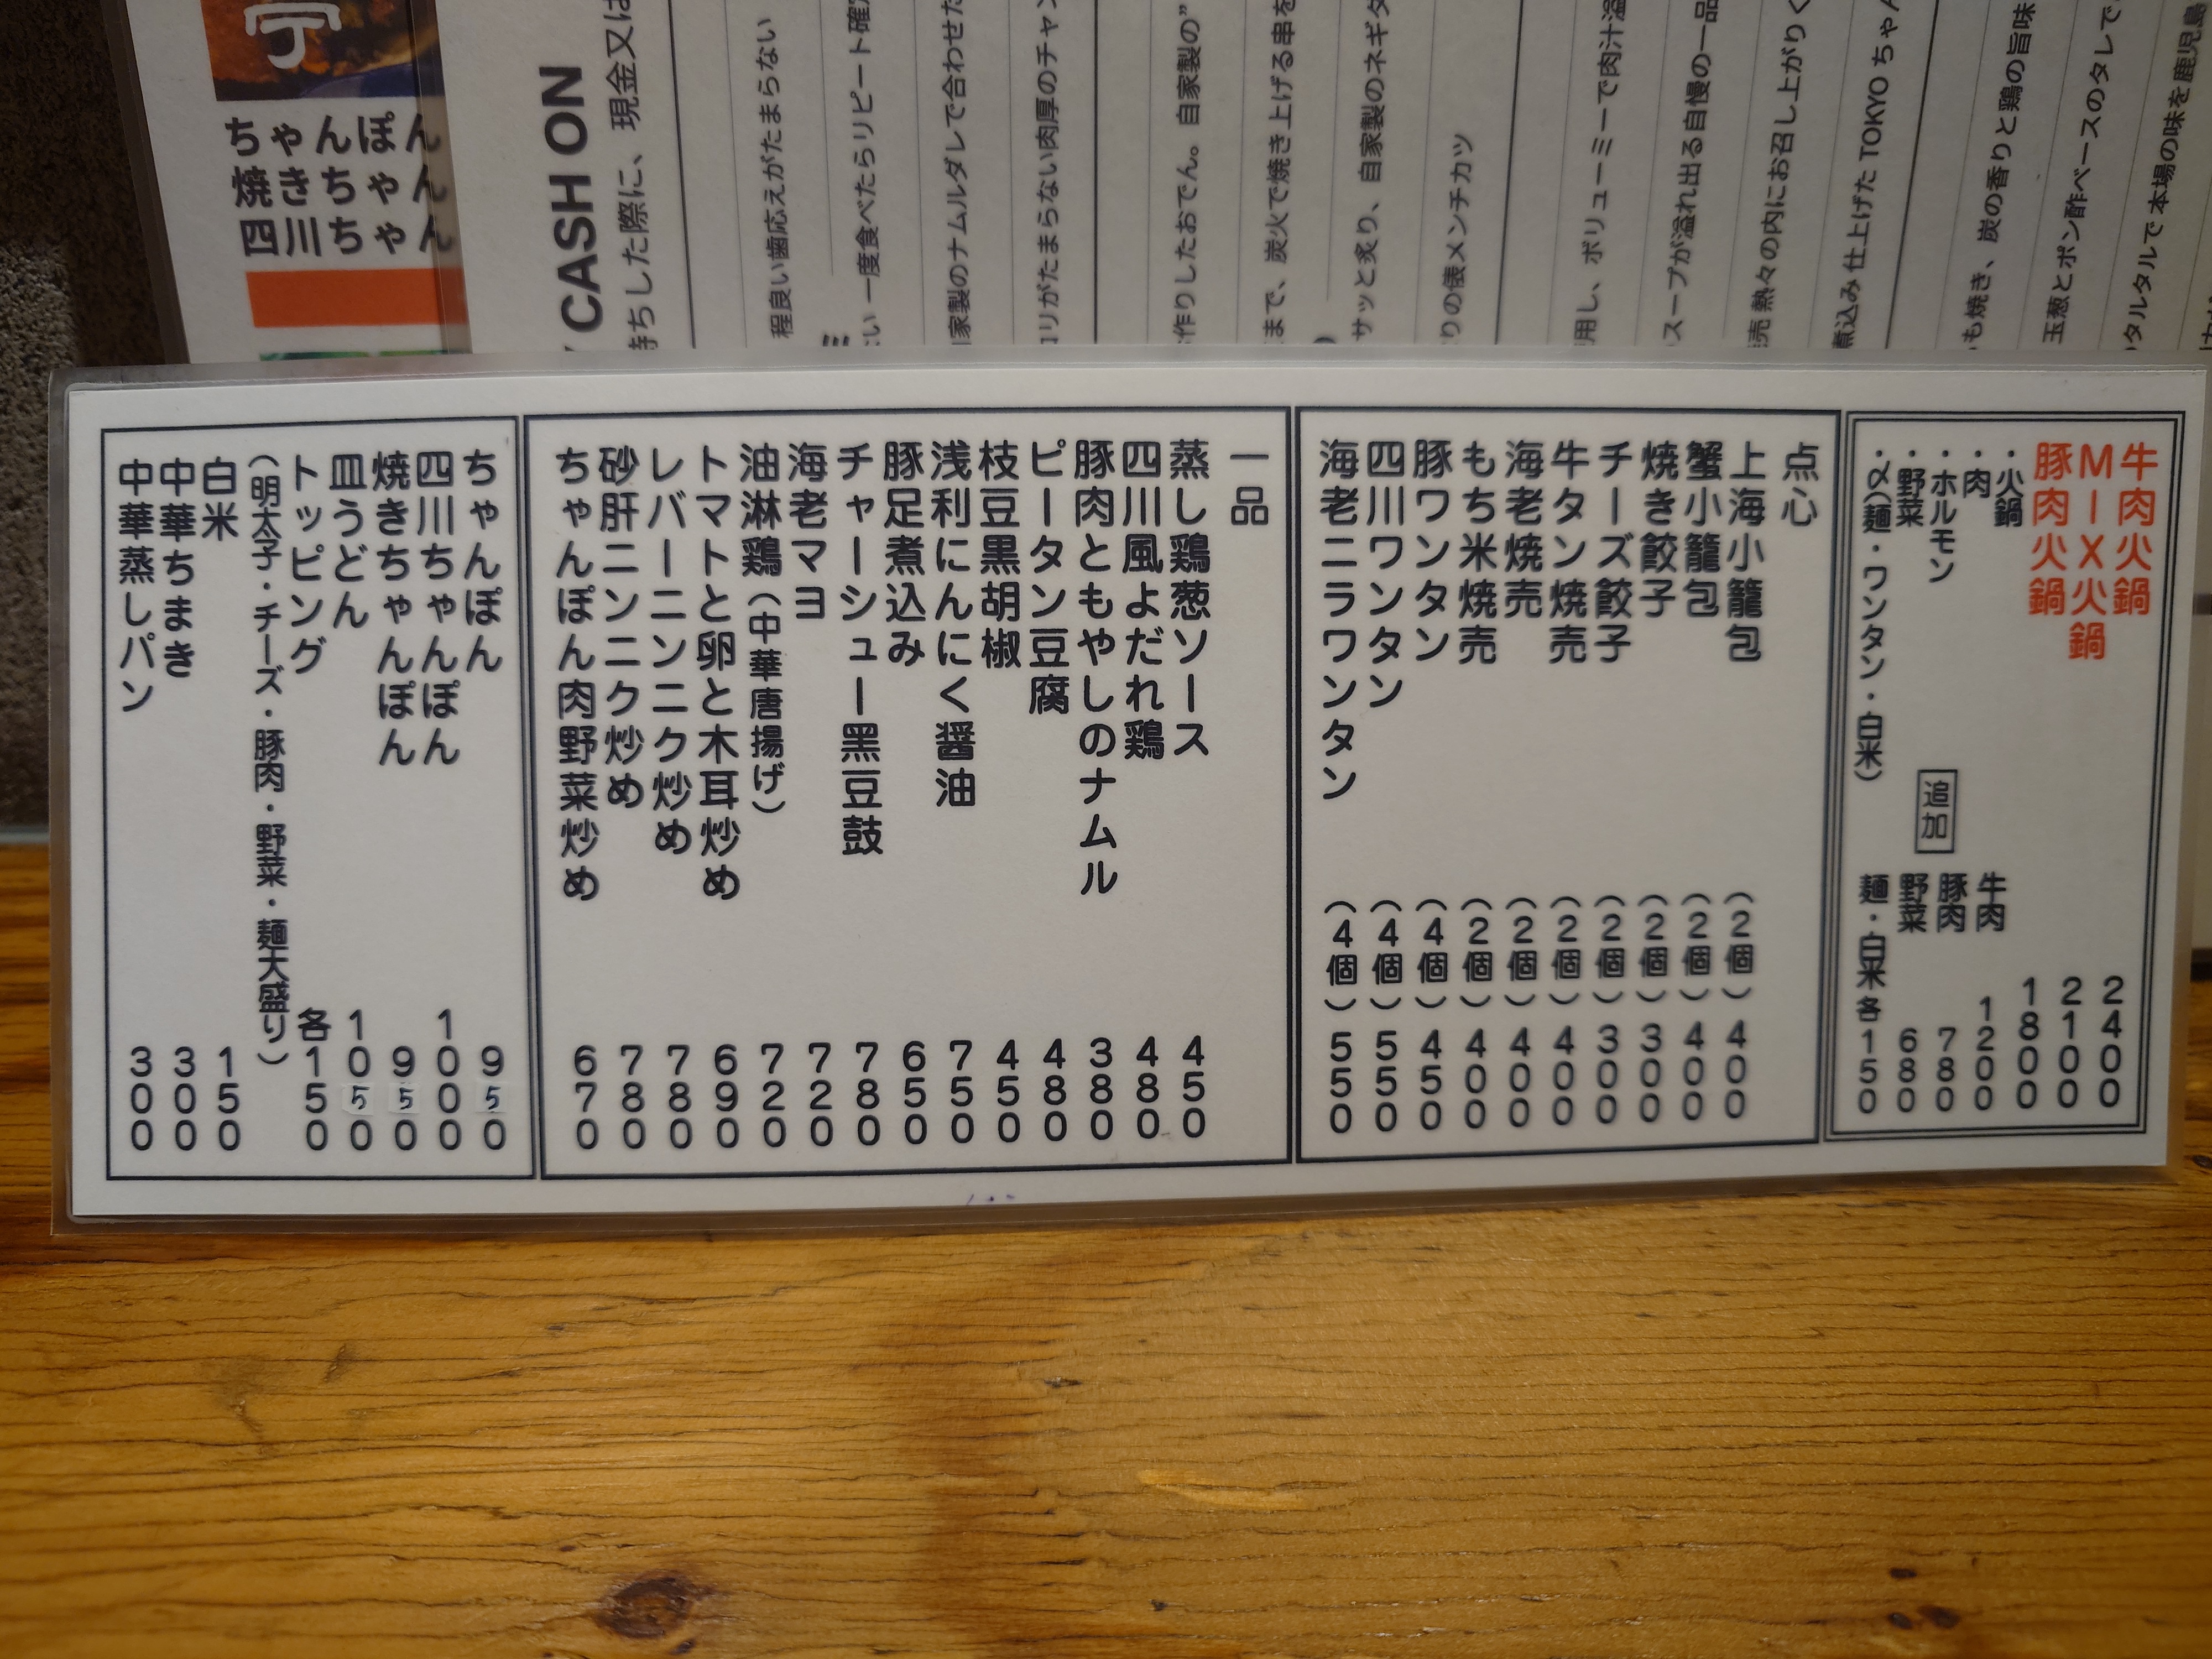 牛肉火鍋 2400
MIX火鍋 2100
豚肉火鍋 1800
・火鍋
・肉
・ホルモン
・野菜
・〆(麺・ワンタン・白米)
追加
牛肉 1200
豚肉 780
野菜 680
麺・白米 各150
点心
上海小籠包 (2個) 400
蟹小籠包 (2個) 400
焼き餃子 (2個) 300
チーズ餃子 (2個) 300
牛タン焼売 (2個) 400
海老焼売 (2個) 400
もち米焼売 (2個) 400
豚ワンタン (4個) 450
四川ワンタン (4個) 550
海老ニラワンタン (4個) 550
一品
蒸し鶏葱ソース 450
四川風よだれ鶏 480
豚肉ともやしのナムル 380
ピータン豆腐 480
枝豆黒胡椒 450
浅利にんにく醤油 750
豚足煮込み 650
チャーシュー黒豆鼓 780
海老マヨ 720
油淋鶏(中華唐揚げ) 720
トマトと卵と木耳炒め 690
レバーニンニク炒め 780
砂肝ニンニク炒め 780
ちゃんぽん肉野菜炒め 670
ちゃんぽん 950
四川ちゃんぽん 1000
焼きちゃんぽん 950
皿うどん 1050
トッピング 各150
(明太子・チーズ・豚肉・野菜・麺大盛り)
白米 150
中華ちまき 300
中華蒸しパン 300
ちゃんぽん
焼きちゃん
四川ちゃん
CASH ON
持ちした際に、現金又は
程良い歯応えがたまらない
い一度食べたらリピート確定
家製のナムルダレで合わせた
リがたまらない肉厚のチャン
作りしたおでん。自家製の"
まで、炭火で焼き上げる串を
サッと炙り、自家製のネギダ
りの俵メンチカツ
用し、ボリューミーで肉汁溢
スープが溢れ出る自慢の一品
売熱々の内にお召し上がりく
煮込み仕上げた TOKYO ちゃん
も焼き、炭の香りと鶏の旨味
玉葱とポン酢ベースのタレで
タルタルで本場の味を鹿児島